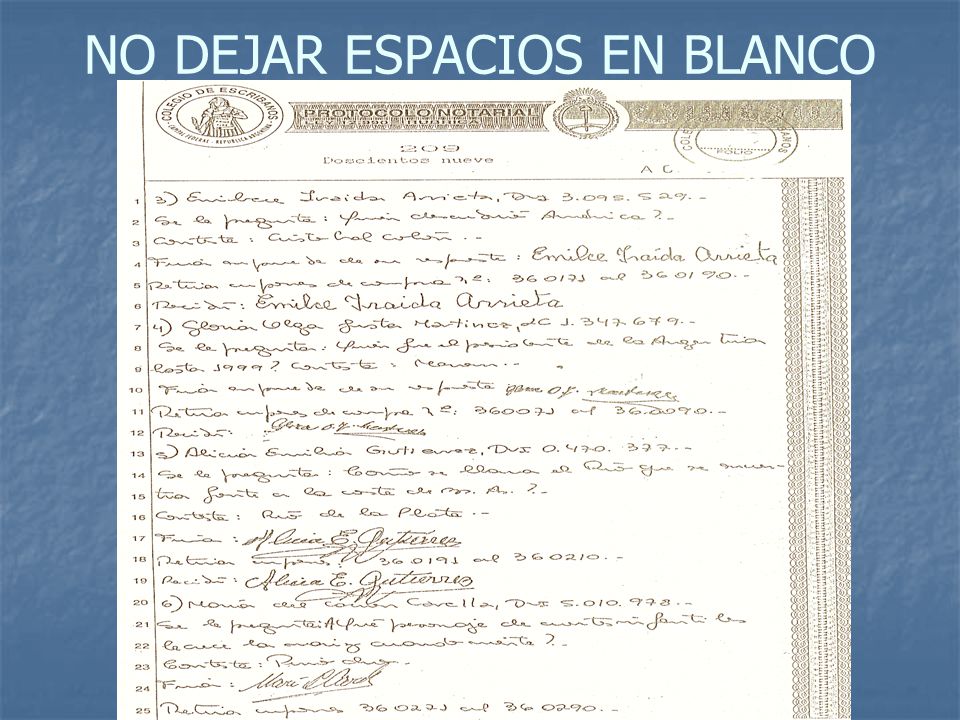 NO DEJAR ESPACIOS EN BLANCO
COLEGIO DE ESCRIBANOS
CAPITAL FEDERAL - REPUBLICA ARGENTINA
PROTOCOLO NOTARIAL
209
Doscientos nueve
FOLIO
A C
1 3) Emilce Iraida Arrieta, DNI 3.095.529.-
2 Se le pregunta: Quién descubrió América?.-
3 Contesta: Cristobal Colón.-
4 Firma en prueba de su respuesta: Emilce Iraida Arrieta
5 Retira cupones de compra nº: 360171 al 360190.-
6 Recibí: Emilce Iraida Arrieta
7 4) Gloria Olga Justa Martinez, LC 1.347.679.-
8 Se le pregunta: Quién fue el presidente de la Argentina
9 hasta 1999? Contesta: Menem.-
10 Firma en prueba de su respuesta
11 Retira cupones de compra nº: 360071 al 36.0090.-
12 Recibí:
13 5) Alicia Emilia Gutierrez, DNI 0.470.377.-
14 Se le pregunta: Cómo se llama el Río que se encuen-
15 tra frente a la costa de Bs. As.?-
16 Contesta: Río de la Plata.-
17 Firma: Alicia E. Gutierrez
18 Retira cupones: 360191 al 360210.-
19 Recibí: Alicia E. Gutierrez
20 6) María del Carmen Carella, DNI 5.010.978.-
21 Se le pregunta: A Qué personaje de cuentos infantiles
22 le crece la nariz cuando miente?.-
23 Contesta:
24 Firma:
25 Retira cupones 360271 al 360290.-